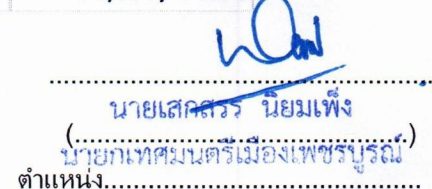 นายเสกสรร นิยมเพ็ง
(......................................................)
นายกเทศมนตรีเมืองเพชรบูรณ์
ตำแหน่ง......................................................